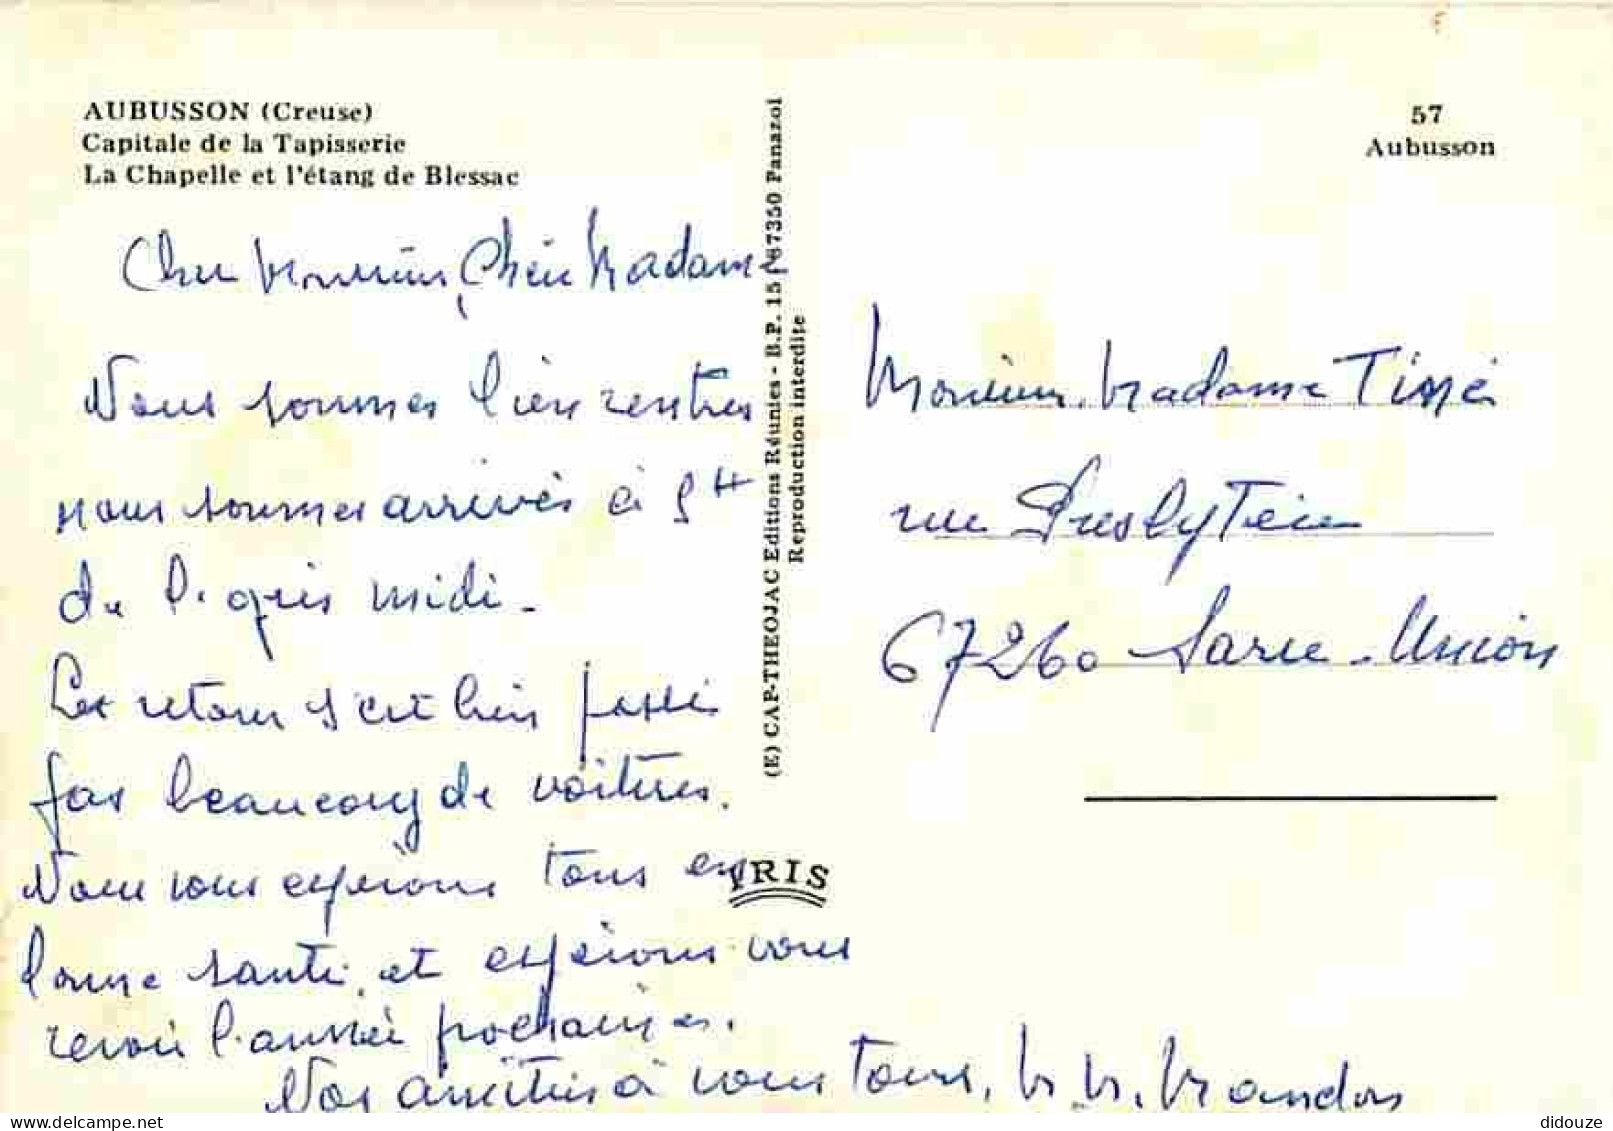 AUBUSSON (Creuse)
Capitale de la Tapisserie
La Chapelle et l'étang de Blessac
57
Aubusson
Cher Monsieur, Chère Madame
Nous sommes bien rentrés
nous sommes arrivés à 5 H
de l'après midi.
Le retour s'est bien passé
pas beaucoup de voitures.
Nous vous espérons tous en
bonne santé, et espérons vous
revoir l'année prochaine.
Nos amitiés à vous tous,
(E) CAP-THEOJAC Editions Réunies - B.P. 15 - 87350 Panazol
Reproduction interdite
IRIS
Monsieur. Madame
rue Presbytère
67260 Sarre-Union
delcampe.net
didouze